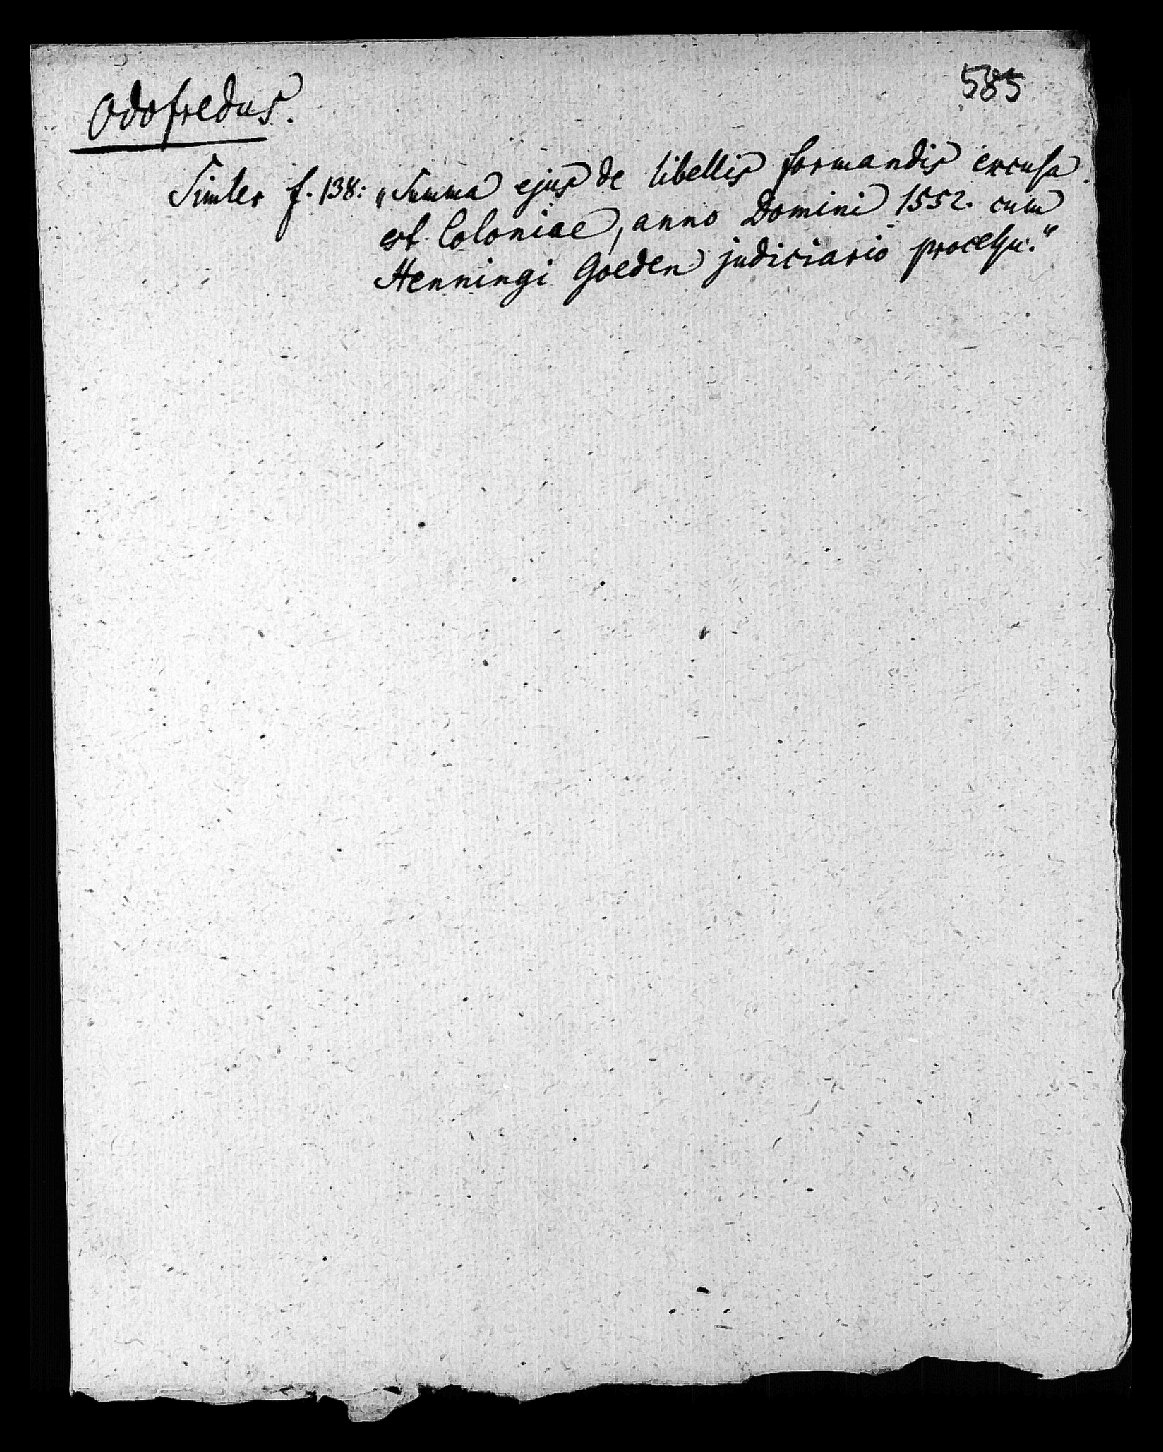 585
Odofredus.
Simler f. 138: „Summa ejus de libellis formandis excusa
est Coloniae, anno Domini 1552. cum
Henningi Goeden judiciario processu.“